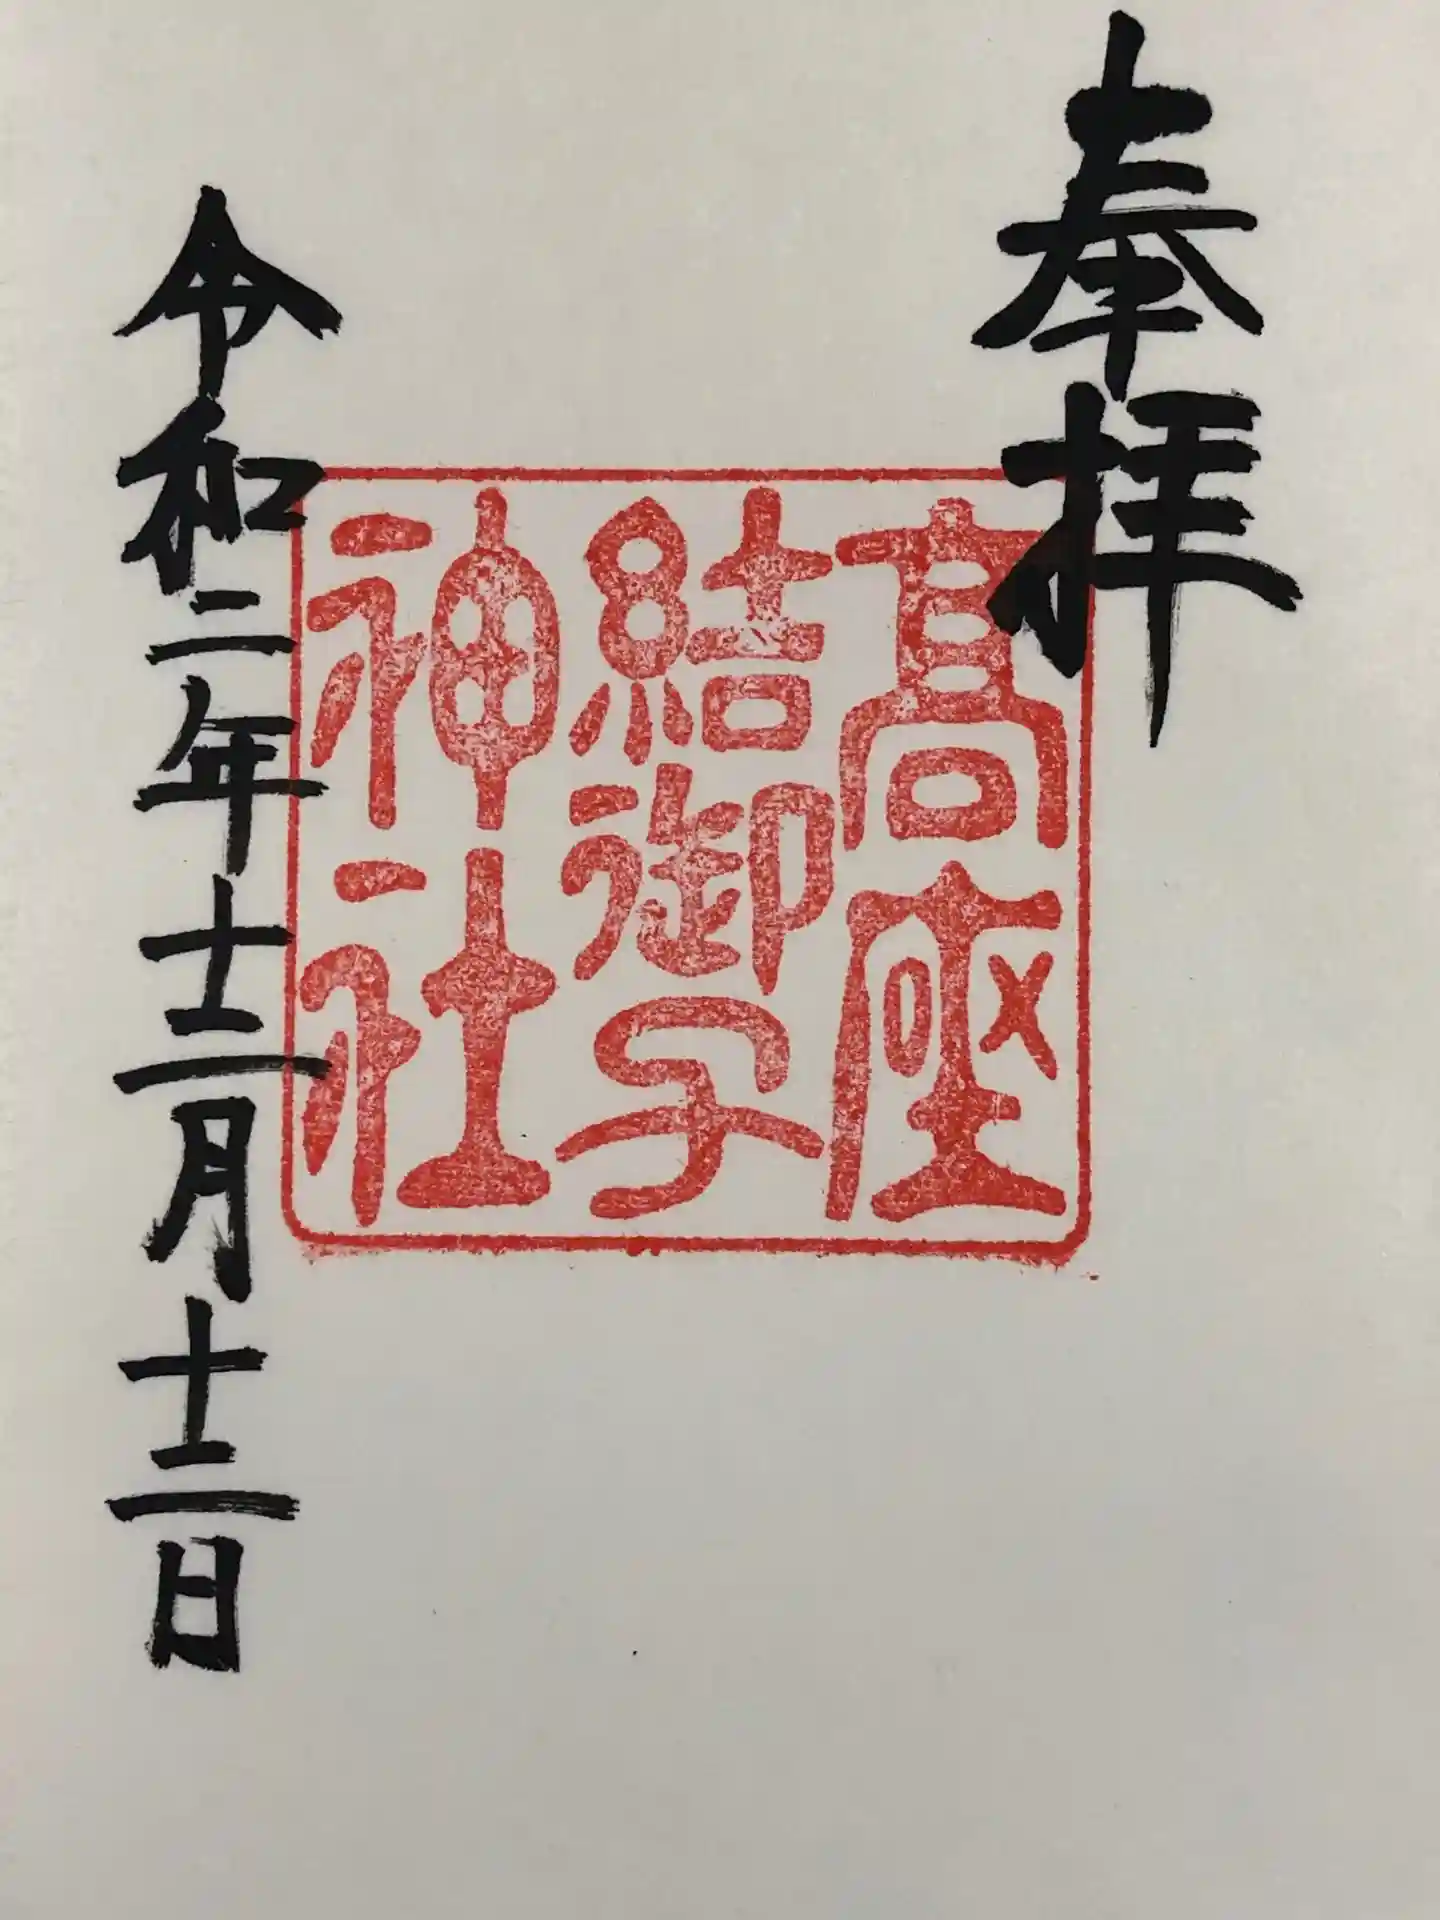 奉拝
髙座
結御子
神社
令和二年十二月十二日